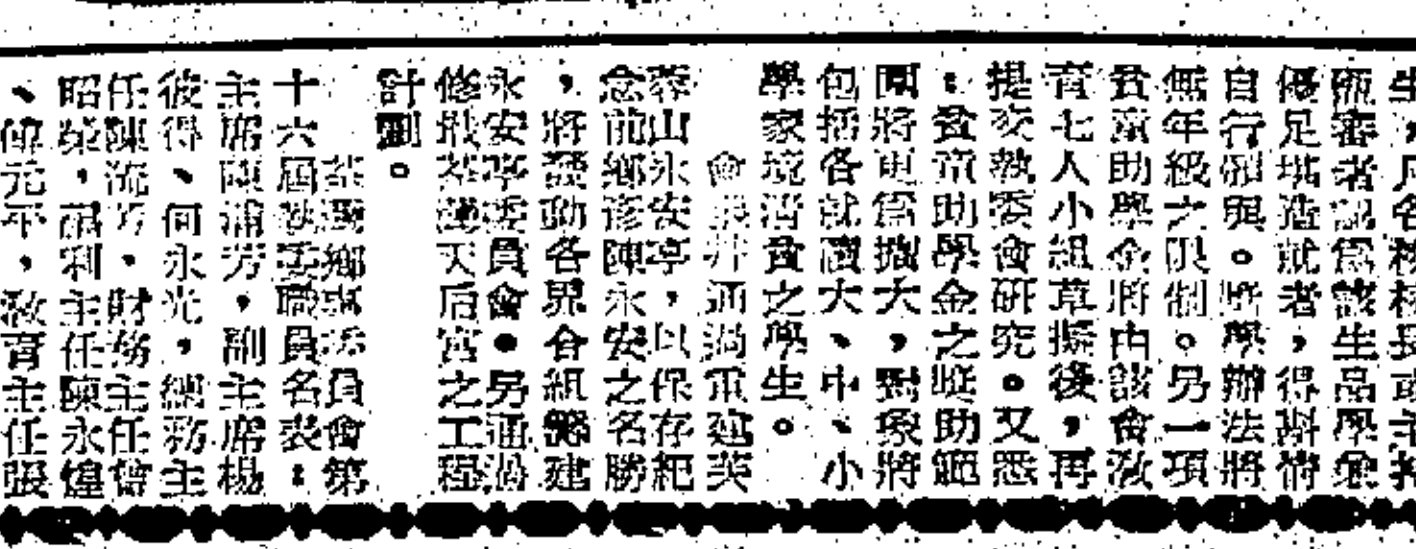 生，凡各校校長或主持
甄審者認為該生品學兼
優足堪造就者，得斟情
自行頒與。將學辦法將
無年級之限制。另一項
貧童助學金將由該會教
育七人小組草擬後，再
提交教委會研究。又悉
：貧童助學金之獎助範
圍將更為擴大，對象將
包括各就讀大、中、小
學家境清貧之學生。
會議并通過重建芙
蓉山永安亭，以保存紀
念前鄉彥陳永安之名勝
，將發動各界合組籌建
永安亭委員會。另通過
修葺荃灣天后宮之工程
計劃。
荃灣鄉事委員會第
十六屆執委職員名表：
主席陳浦芳，副主席楊
彼得、何永光，總務主
任陳流芳，財務主任曾
昭榮，福利主任陳永煌
、偉元平，教育主任張